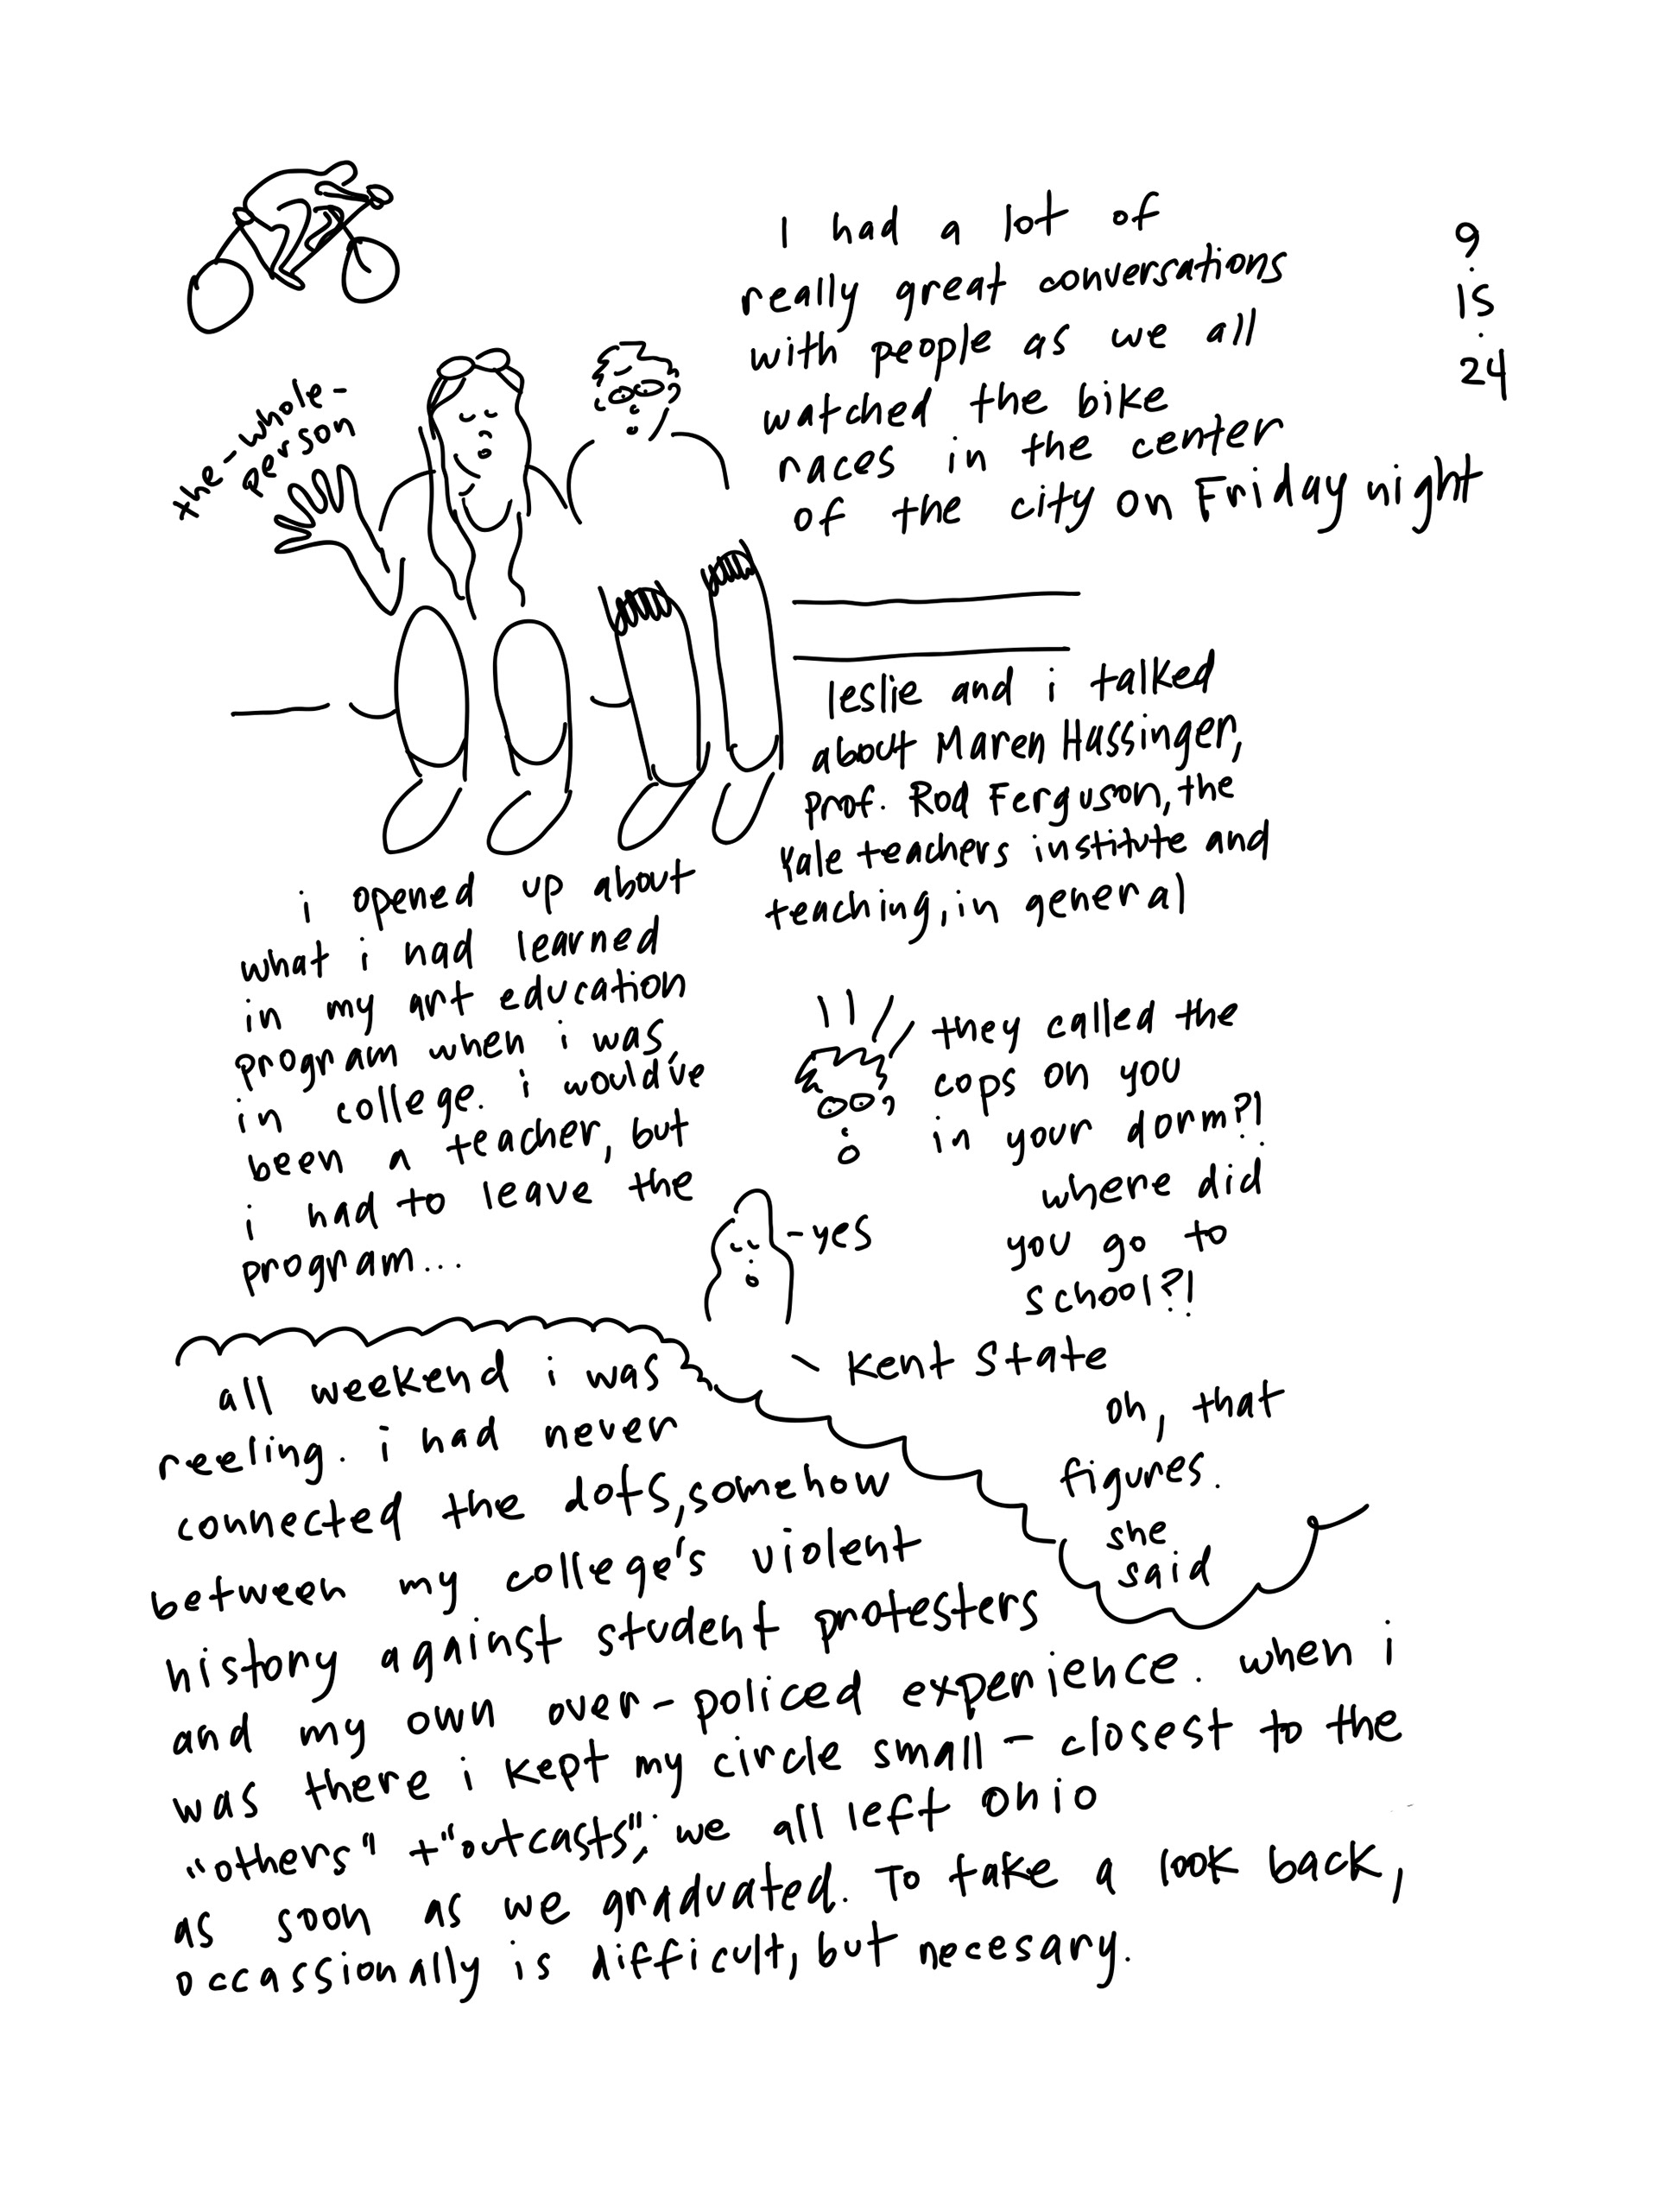 I had a lot of
really great conversations
with people as we all
watched the bike
races in the center
of the city on Friday night
9
.
is
.
24
the-whole-
person
leslie and i talked
about Maren Hassinger,
prof. Rod Ferguson, the
Yale teachers institute and
teaching, in general
i opened up about
what i had learned
in my art education
program when i was
in college. i would've
been a teacher, but
i had to leave the
program...
they called the
cops on you
in your dorm?!
where did
you go to
school?!
-yes
- Kent State
oh, that
figures.
she
said
all weekend i was
reeling. i had never
connected the dots, somehow
between my college's violent
history against student protesters
and my own over-policed experience. when i
was there i kept my circle small - closest to the
"others" + "outcasts"; we all left Ohio
as soon as we graduated. To take a look back,
occassionally is difficult, but necesary.